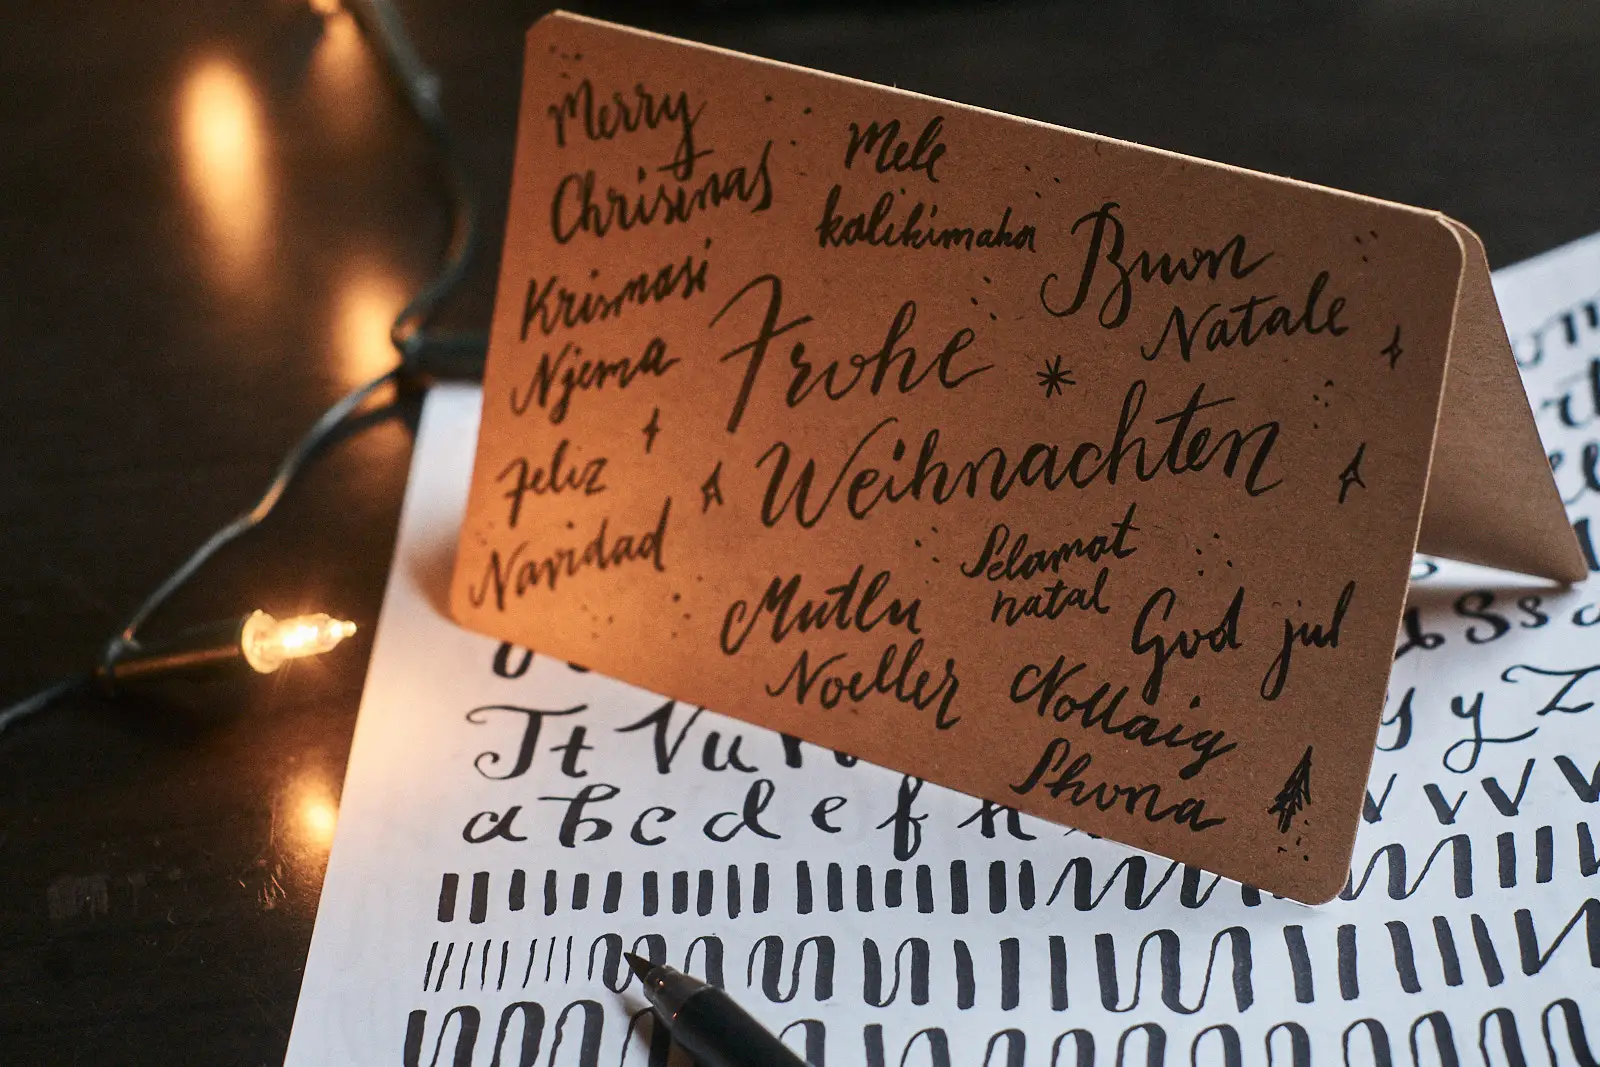 Merry
Christmas
Mele
kalikimaka
Buon
Natale
Krismasi
Njema
Frohe
Weihnachten
Feliz
Navidad
Selamat
natal
Mutlu
Noeller
God jul
Nollaig
Shona
Tt Vu
a b c d e f h
Ss
y z